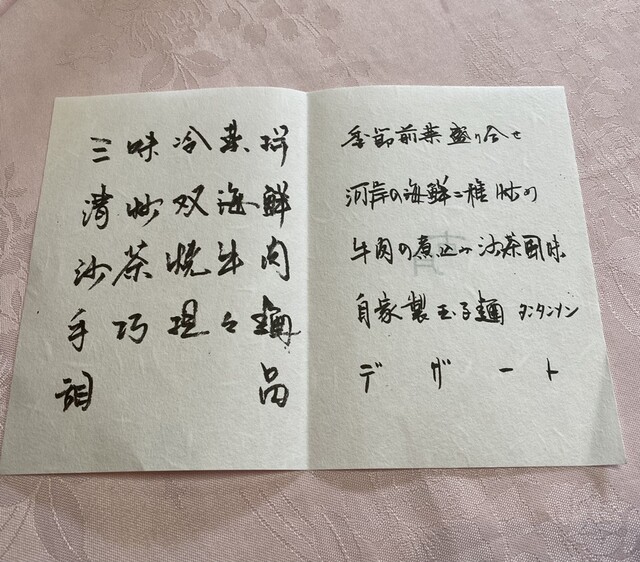 三味冷菜拼
清炒双海鮮
沙茶焼牛肉
手巧担々麺
甜品
季節前菜盛り合せ
河岸の海鮮二種炒め
牛肉の煮込み沙茶風味
自家製玉子麺 タンタンメン
デザート